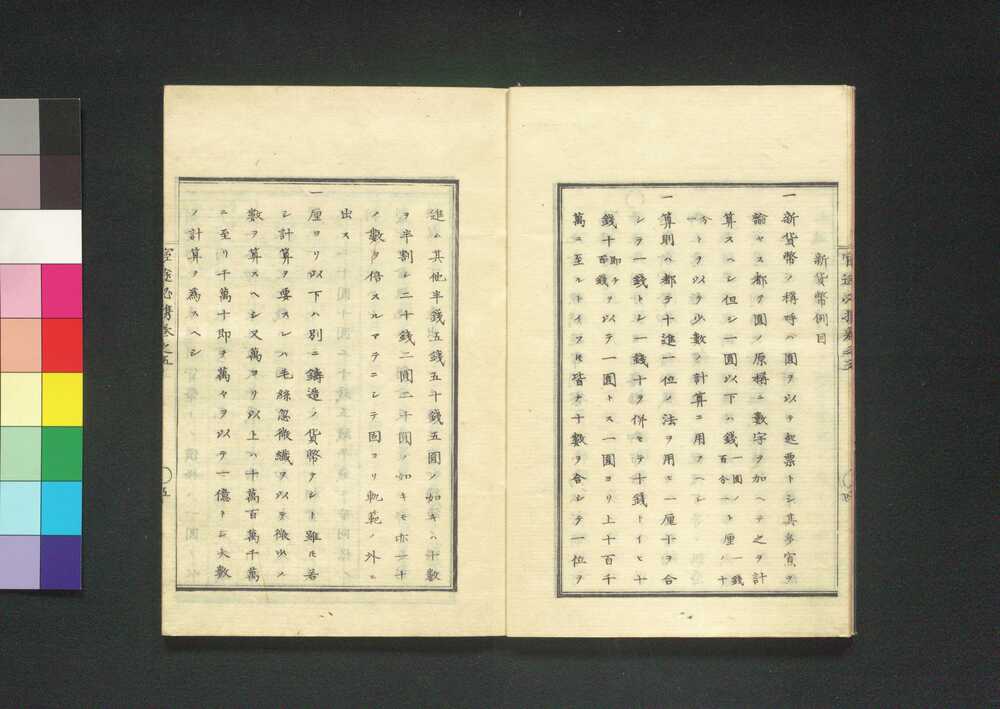 新貨幣例目
一新貨幣ノ稱呼ハ圓ヲ以テ起票トシ其多寡ヲ
論セス都テ圓ノ原稱ニ數字ヲ加ヘテ之ヲ計
算スヘシ但シ一圓以下ハ錢一圓ノ百分一ト厘一錢ノ十
分一トヲ以テ少數ノ計算ニ用フヘシ
一算則ハ都テ十進一位ノ法ヲ用ヒ一厘十ヲ合
シテ一錢トシ一錢十ヲ併セテ十錢トイヒ十
錢十即チ百錢ヲ以テ一圓トス一圓ヨリ上十百千
萬ニ至ルトイフトモ皆ナ十數ヲ合シテ一位ヲ
進ム其他半錢五錢五十錢五圓ノ如キハ十數
ヲ半割シ二十錢二圓二十圓ノ如キモ亦一十
ノ數ヲ倍スルマテニシテ固ヨリ軌範ノ外ニ
出ス
一厘ヨリ以下ハ別ニ鑄造ノ貨幣ナシト雖モ若
シ計算ヲ要スレハ毛絲忽微纖ヲ以テ微少ノ
數ヲ算スヘシ又萬ヨリ以上ハ十萬百萬千萬
ニ至リ千萬十即ヲ萬ヲ以テ一億トシ大數
ノ計算ヲ爲スヘシ
五